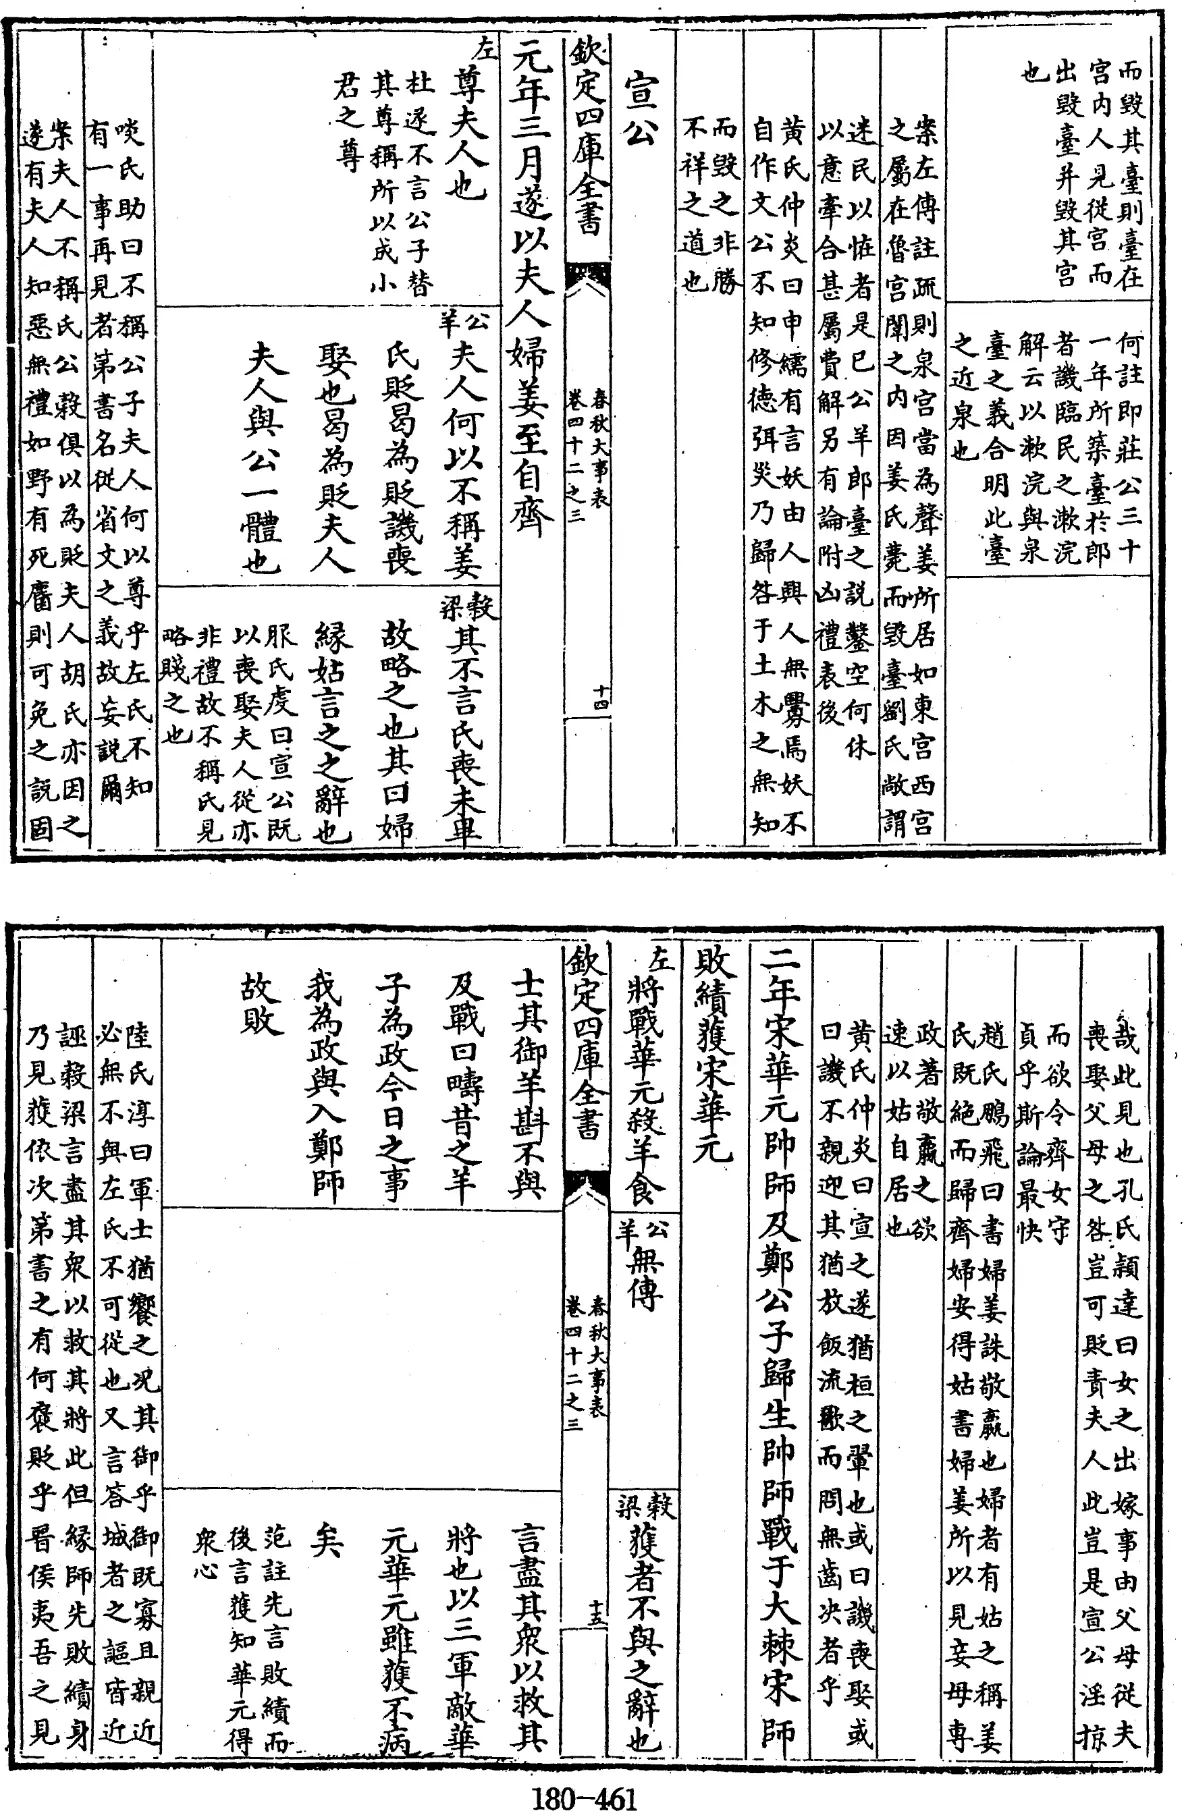 而毀其臺則臺在
宫内人見從宫而
出毀臺并毀其宫
也
何註即莊公三十
一年所築臺於郎
者譏臨民之漱浣
解云以漱浣與泉
臺之義合明此臺
之近泉也
案左傳註疏則泉宫當為聲姜所居如東宫西宫
之屬在魯宫闈之内因姜氏薨而毀臺劉氏敞謂
迷民以怪者是已公羊郎臺之說鑿空何休
以意牽合甚屬費解另有論附凶禮表後
黄氏仲炎曰申繻有言妖由人興人無釁焉妖不
自作文公不知修德弭災乃歸咎于土木之無知
而毀之非勝
不祥之道也
宣公
欽定四庫全書
春秋大事表
卷四十二之三
十四
元年三月遂以夫人婦姜至自齊
左
尊夫人也
杜遂不言公子替
其尊稱所以成小
君之尊
公羊
夫人何以不稱姜
氏貶曷為貶譏喪
娶也曷為貶夫人
夫人與公一體也
穀梁
其不言氏喪未畢
故略之也其曰婦
緣姑言之之辭也
服氏虔曰宣公既
以喪娶夫人從亦
非禮故不稱氏見
略賤之也
啖氏助曰不稱公子夫人何以尊乎左氏不知
有一事再見者第書名從省文之義故妄說爾
案夫人不稱氏公穀俱以為貶夫人胡氏亦因之
遂有夫人知惡無禮如野有死麕則可免之說固
哉此見也孔氏穎達曰女之出嫁事由父母從夫
喪娶父母之咎豈可貶責夫人此豈是宣公淫掠
而欲令齊女守
貞乎斯論最快
趙氏鵬飛曰書婦姜誅敬嬴也婦者有姑之稱姜
氏既絕而歸齊婦安得姑書婦姜所以見妾母專
政著敬嬴之欲
速以姑自居也
黄氏仲炎曰宣之遂猶桓之翬也或曰譏喪娶或
曰譏不親迎其猶放飯流歠而問無齒决者乎
二年宋華元帥師及鄭公子歸生帥師戰于大棘宋師
敗績獲宋華元
左
將戰華元殺羊食
公羊
無傳
穀梁
獲者不與之辭也
欽定四庫全書
春秋大事表
卷四十二之三
十五
士其御羊斟不與
及戰曰疇昔之羊
子為政今日之事
我為政與入鄭師
故敗
言盡其衆以救其
將也以三軍敵華
元華元雖獲不病
矣
范註先言敗績而
後言獲知華元得
衆心
陸氏淳曰軍士猶饗之况其御乎御既寡且親近
必無不與左氏不可從也又言答城者之謳皆近
誣穀梁言盡其衆以救其將此但緣師先敗績身
乃見獲依次第書之有何褒貶乎晋侯夷吾之見
180-461